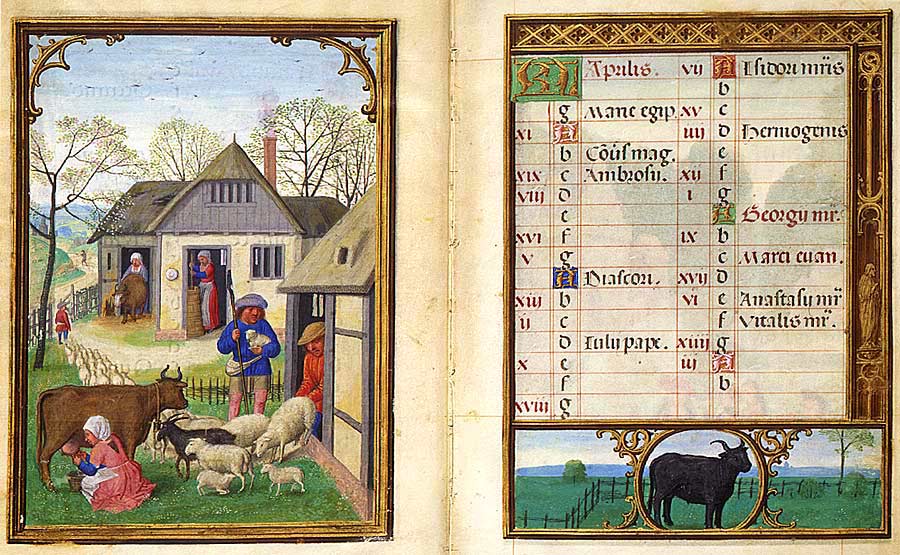 KL Aprilis. vij A Isidori mris
b
g Marie egip. xv c
xi A iiij d Hermogenis
b Cōuis mag. e
xix c Ambrosij. xij f
viij d i g
e A Georgij mr.
xvi f ix b
v g c Marci euan.
A Diascori. xvij d
xiij b vi e Anastasij mr
ij c f Vitalis mr.
d Iulij pape. xiiij g
x e iij A
f b
xviij g